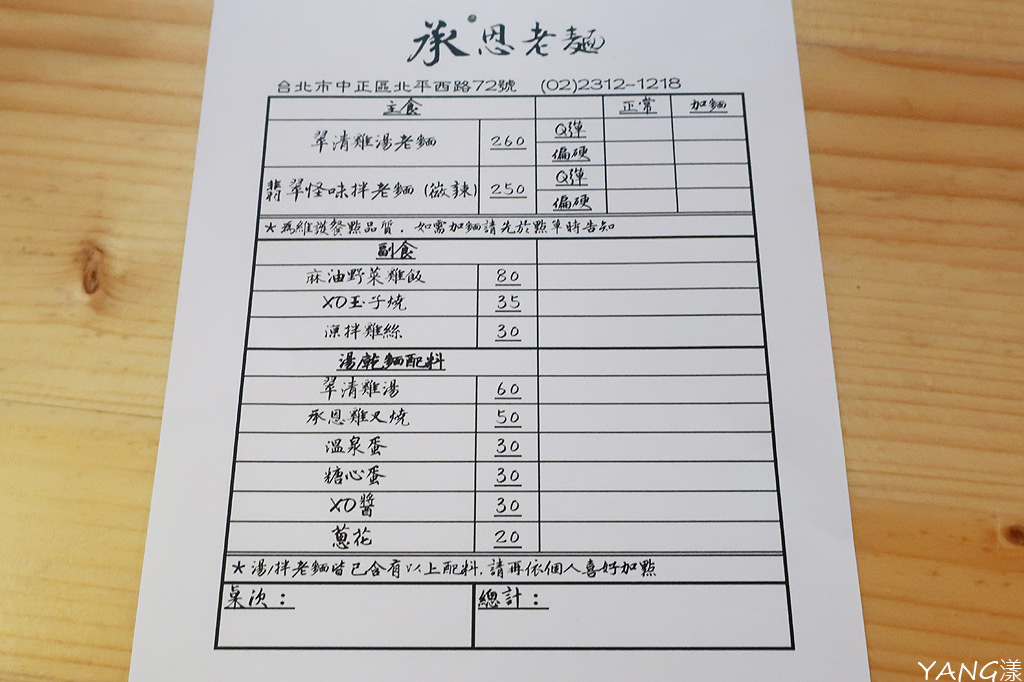 承恩老麵
台北市中正區北平西路72號 (02)2312-1218
主食 正常 加麵
翠清雞湯老麵 260 Q彈
偏硬
翡翠怪味拌老麵(微辣) 250 Q彈
偏硬
*為維護餐點品質，如需加麵請先於點單時告知
副食
麻油野菜雞飯 80
XO玉子燒 35
涼拌雞絲 30
湯乾麵配料
翠清雞湯 60
承恩雞叉燒 50
溫泉蛋 30
糖心蛋 30
XO醬 30
蔥花 20
*湯/拌老麵皆已含有以上配料，請再依個人喜好加點
桌次： 總計：
YANG漾